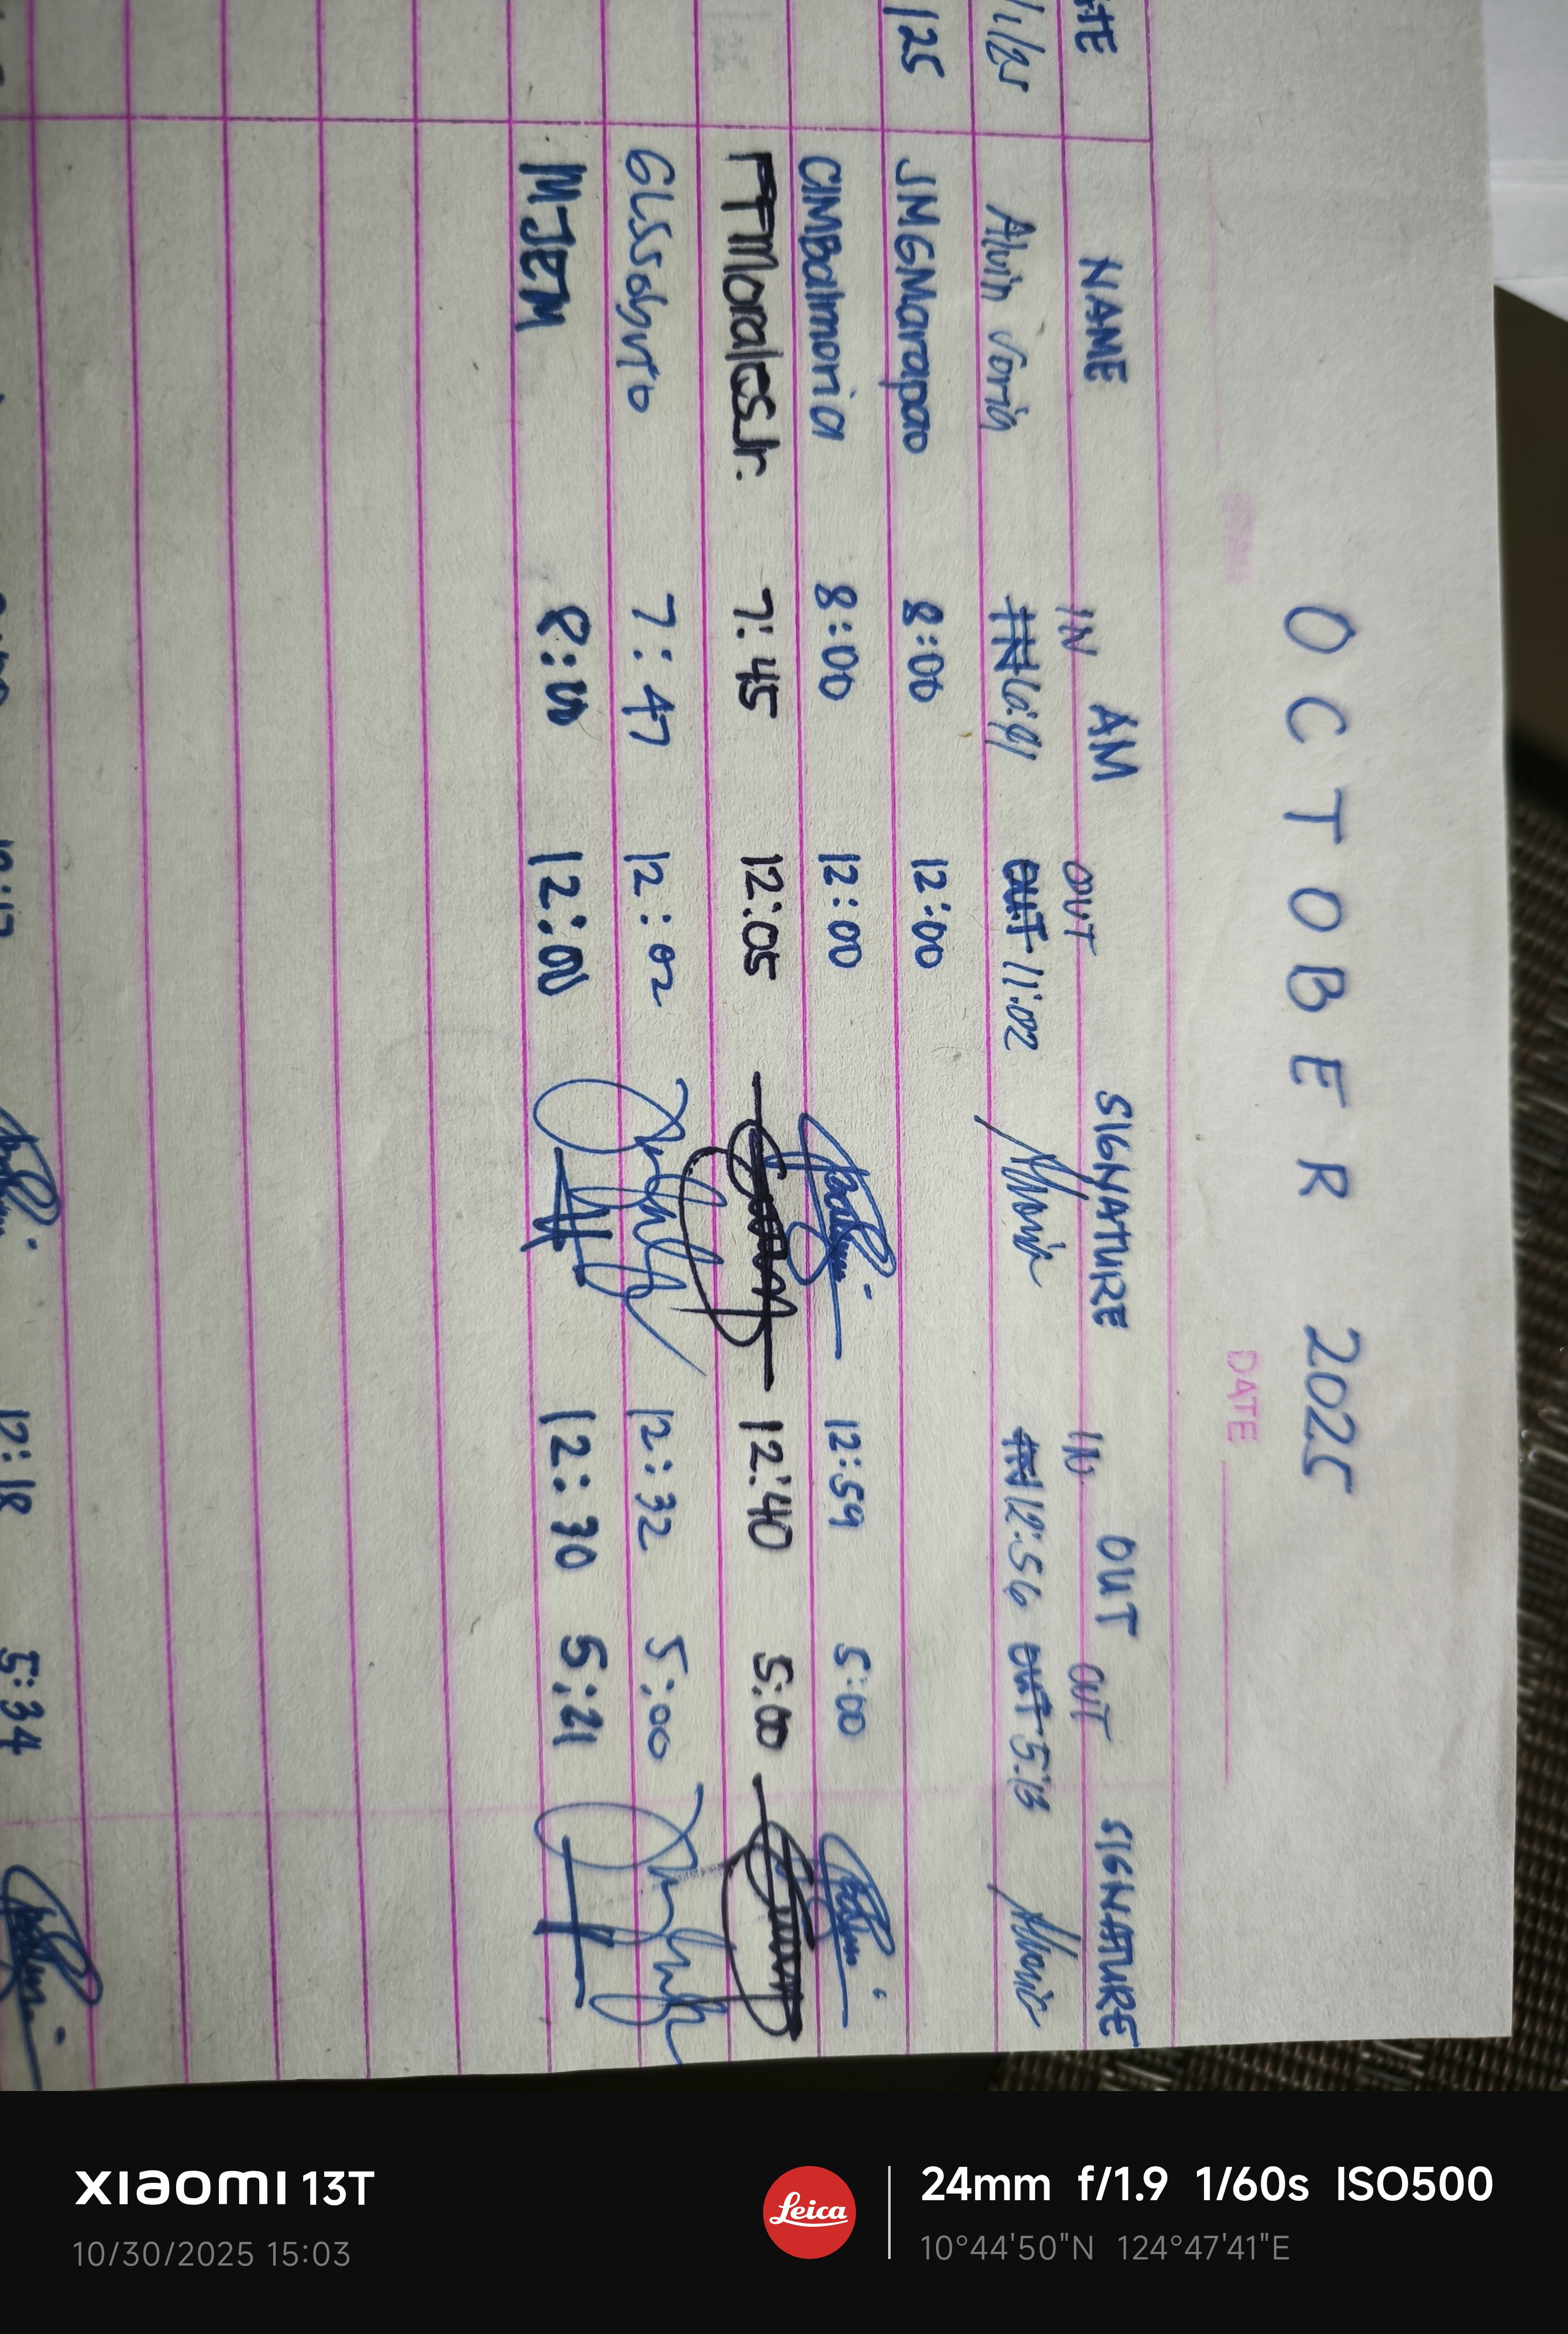 OCTOBER 2025
DATE
TE NAME AM SIGNATURE OUT SIGNATURE
IN OUT IN OUT
/1/25 Alvin Voria IN OUT 11:02 IN 12:56 OUT 5:13
/25 JMGMarapao 8:00 12:00
CIMBalmoria 8:00 12:00 12:59 5:00
FTMoralesJr. 7:45 12:05 12:40 5:00
GLSSabuto 7:47 12:02 12:32 5:00
M-JEM 8:00 12:00 12:30 5:21
12:18 5:34
XIAOMI 13T
10/30/2025 15:03
Leica
24mm f/1.9 1/60s ISO500
10°44'50"N 124°47'41"E